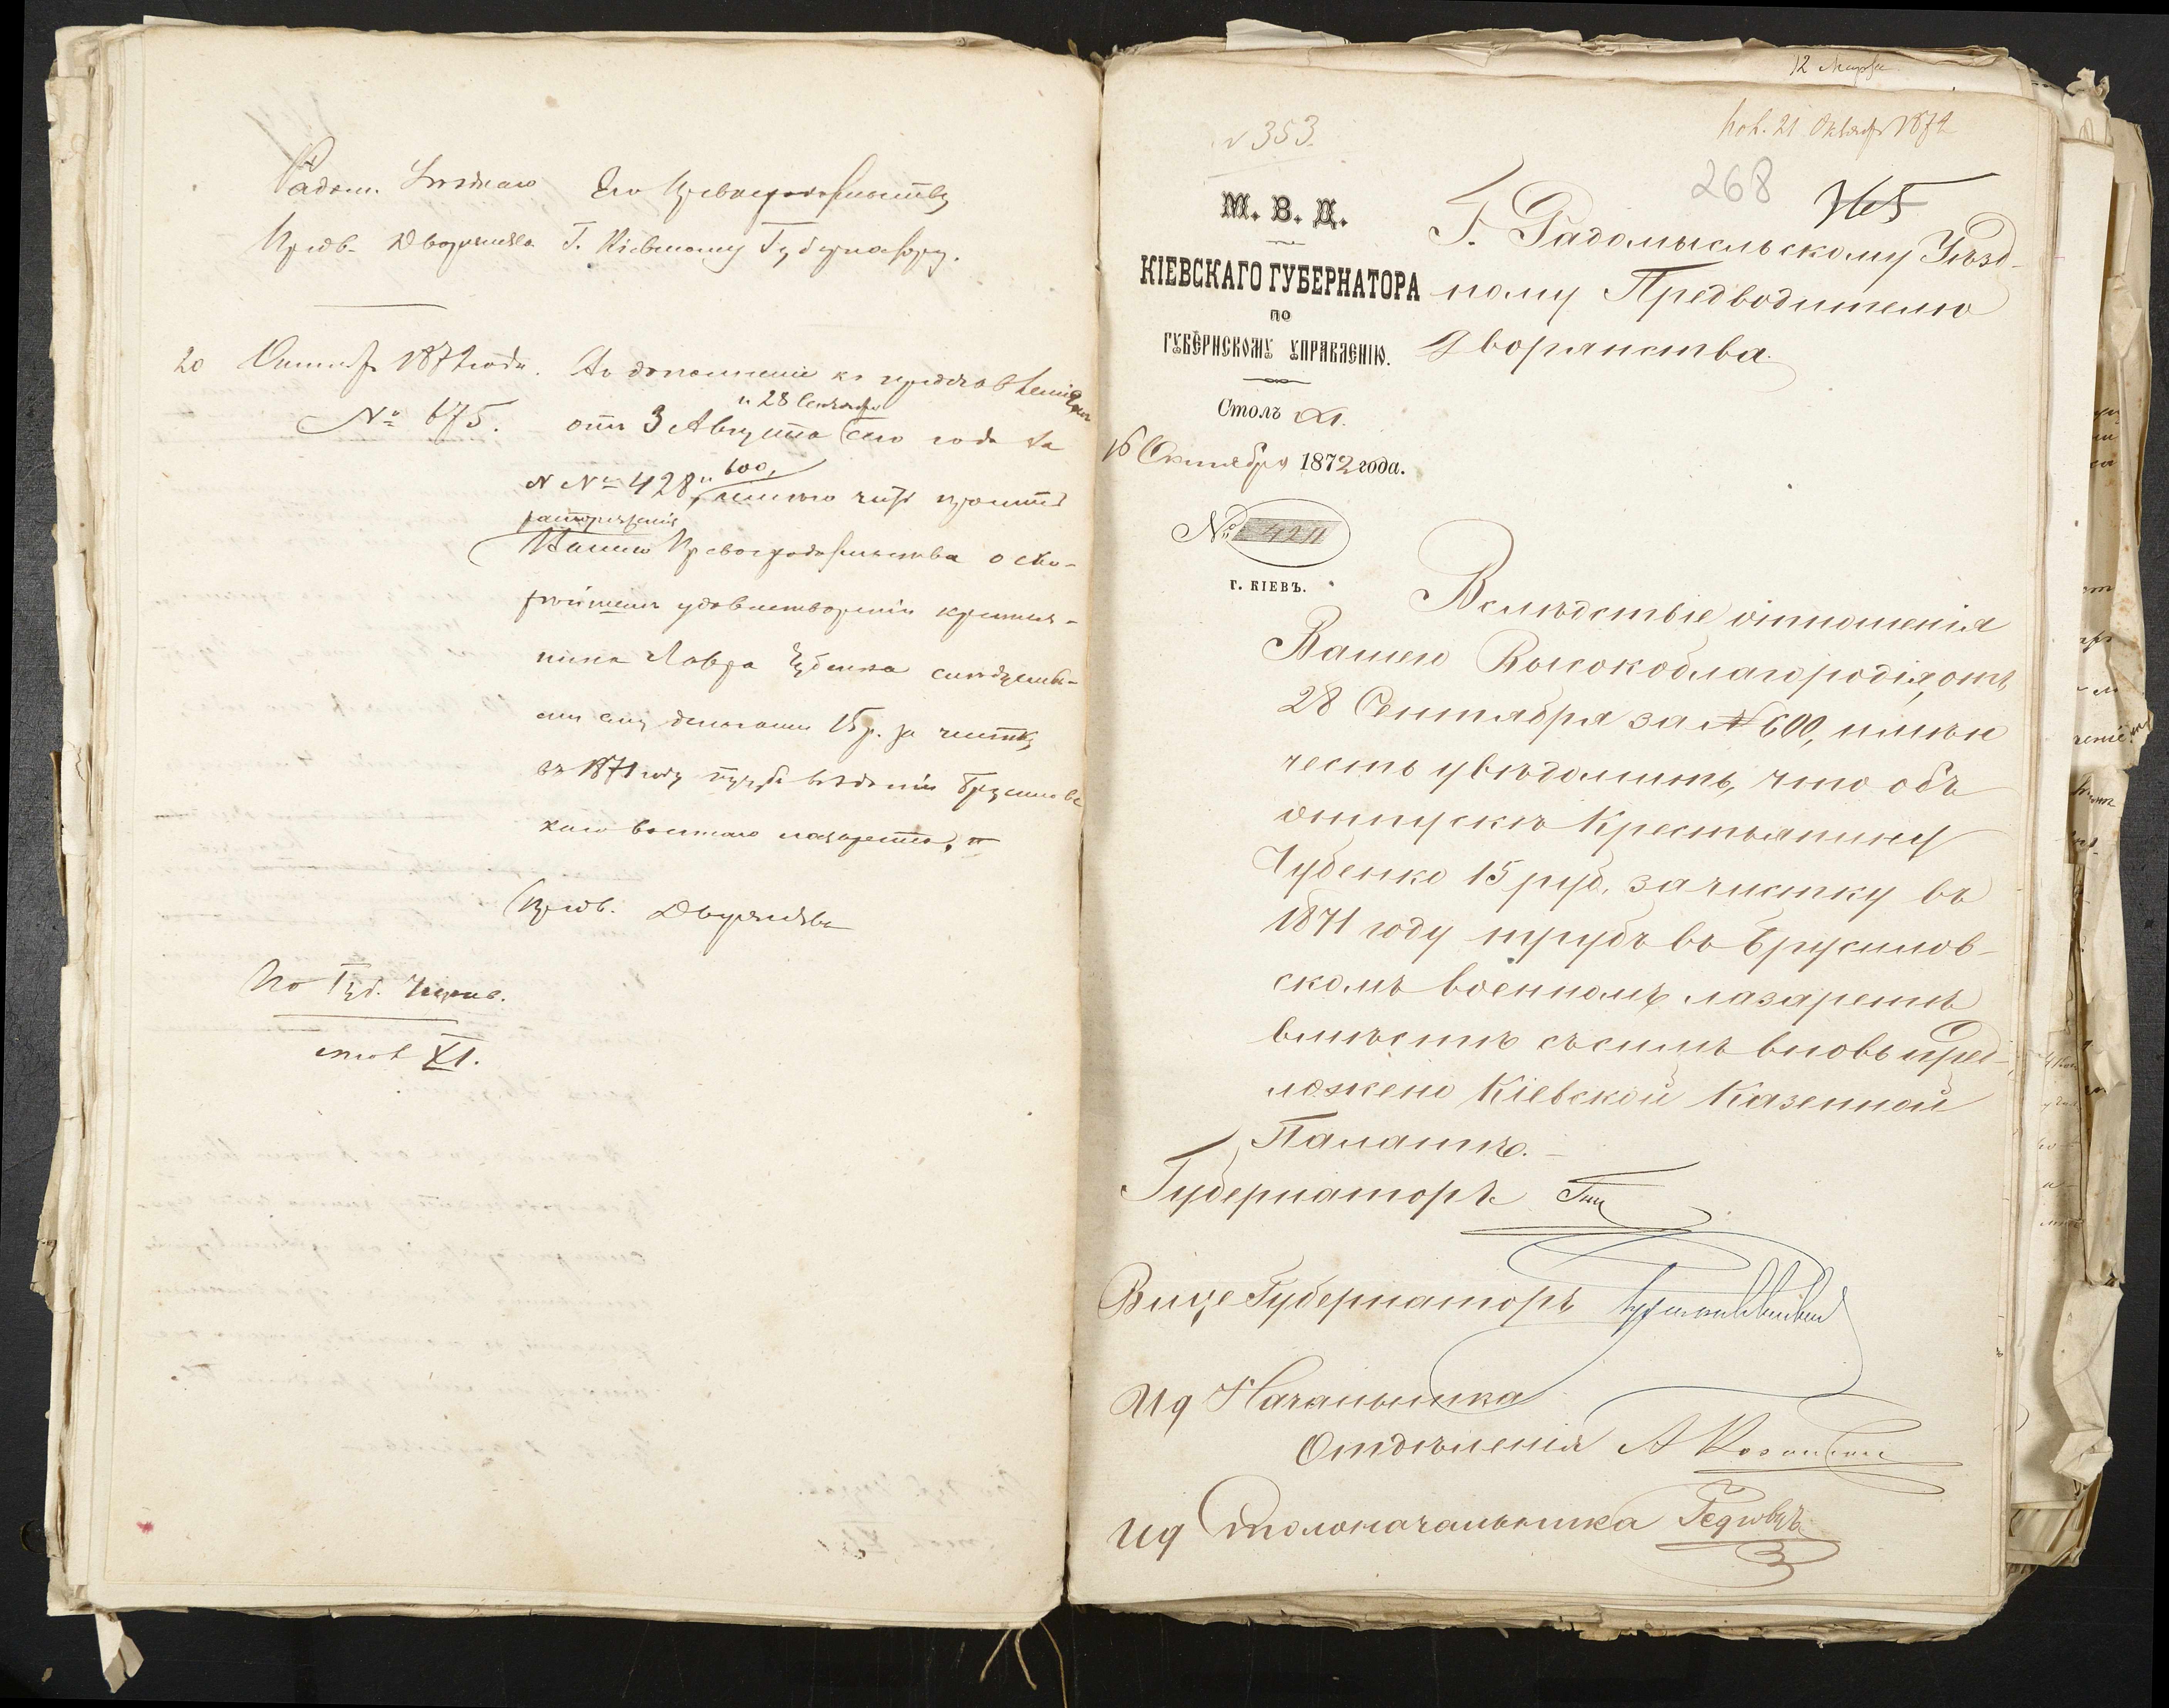 Радом. Уѣзднаго
Предв. Дворянства
20 Октября 1872 года.
№ 675.
Его Превосходительству
Г. Кіевскому Губернатору.
Въ дополненіе къ представленіямъ
отъ 3 Августа и 28 Сентября сего года за
№№ 428 и 600, имѣю честь просить
распоряженія
Вашего Превосходительства о ско-
рѣйшемъ удовлетвореніи крестья-
нина Лавра Чубенка слѣдуемы-
ми ему деньгами 15 р. за чистку
въ 1871 году трубъ въ зданіи Брусиловс
каго военнаго лазарета.
Предв. Дворянства
По Губ. Управ.
столъ XI.
12 Марта
№ 353.
Пол. 21 Октября 1872
268
765
М. В. Д.
КІЕВСКАГО ГУБЕРНАТОРА
ПО
ГУБЕРНСКОМУ УПРАВЛЕНІЮ.
Столъ XI.
16 Октября 1872 года.
№ 4211
Г. КІЕВЪ.
Г. Радомысльскому Уѣзд-
ному Предводителю
Дворянства.
Вслѣдствіе отношенія
Вашего Высокоблагородія, отъ
28 Сентября за № 600, имѣю
честь увѣдомить, что объ
отпускѣ Крестьянину
Чубенко 15 руб. за чистку въ
1871 году трубъ въ Брусилов-
скомъ военномъ лазаретѣ
вмѣстѣ съ симъ вновь пред-
ложено Кіевской Казенной
Палатѣ.
Губернаторъ
Вице Губернаторъ
ИД Начальника
Отдѣленія А
ИД Столоначальника